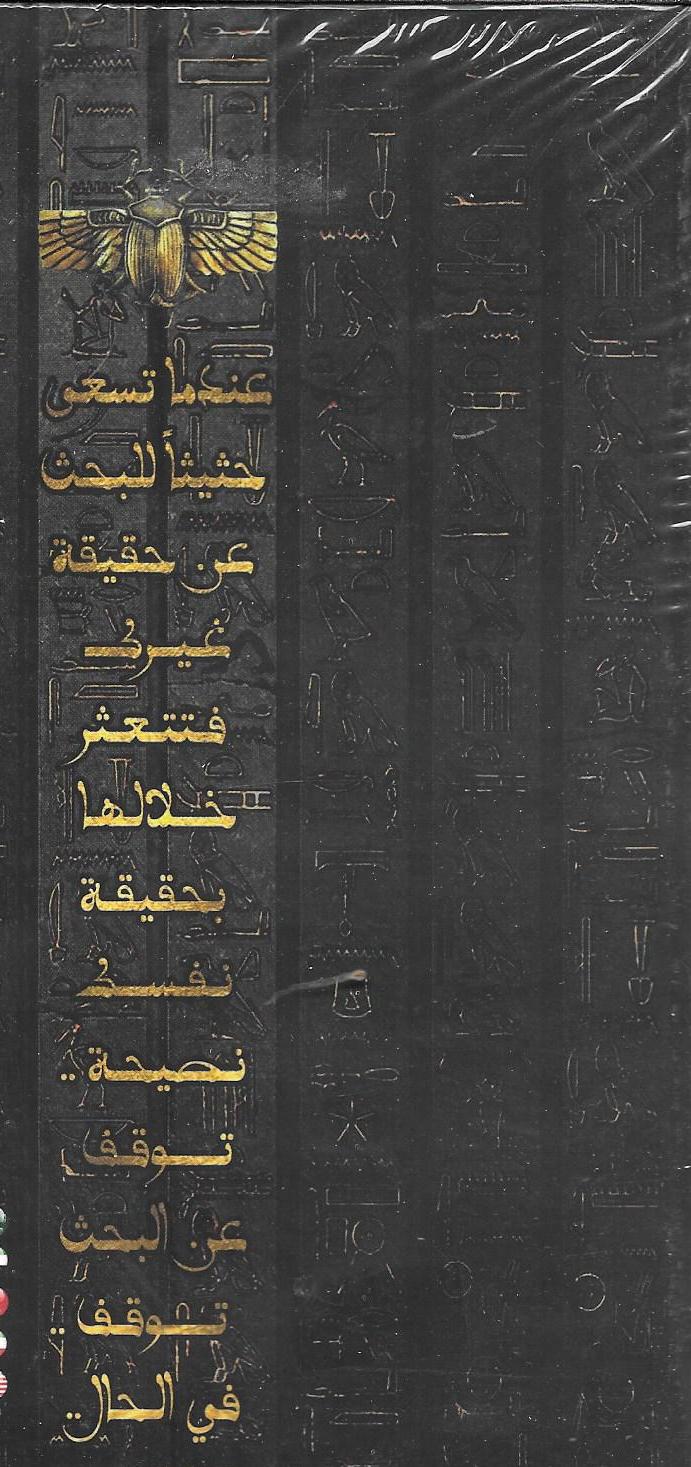 عندما تسعى
حثيثاً للبحث
عن حقيقة
غيرك
فتتعثر
خلالها
بحقيقة
نفسك
نصيحة ..
توقف
عن البحث
توقف ..
في الحال ..